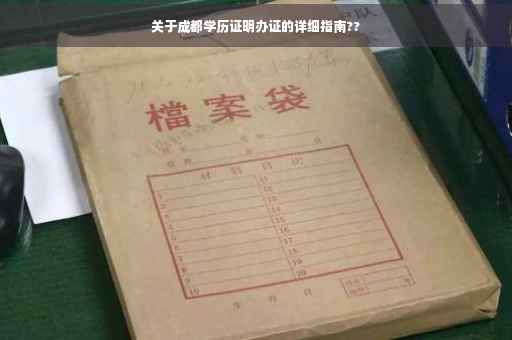 关于成都学历证明办证的详细指南??
檔案袋
材料目次
1 11
2 12
3 13
4 14
5 15
6 16
7 17
8 18
9 19
10 20
年 月 日